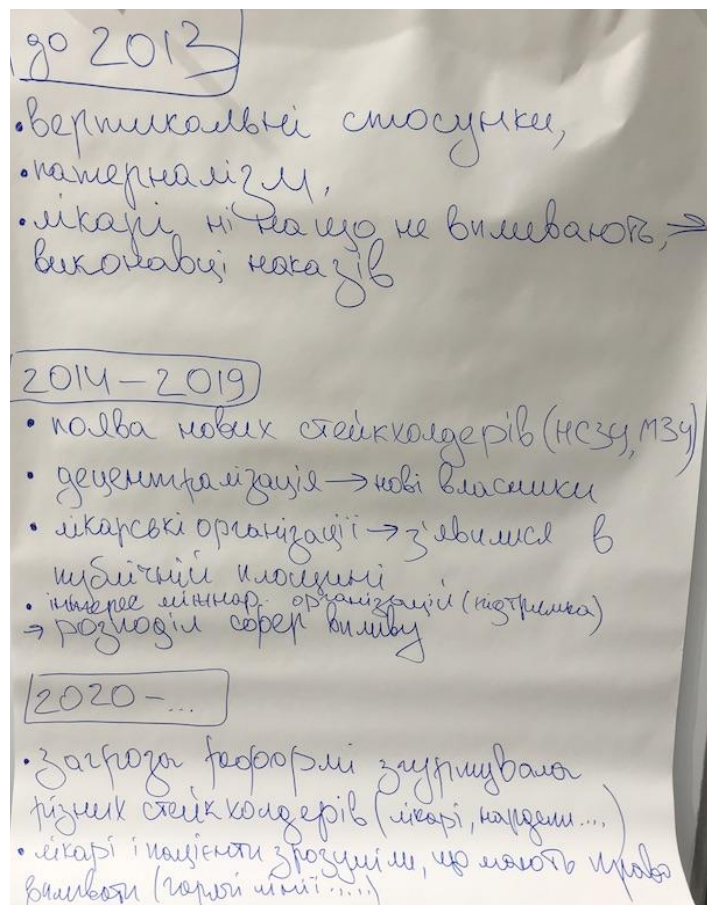 до 2013
• вертикальні стосунки,
• патерналізм,
• лікарі ні на що не впливають, →
виконавці наказів
2014 – 2019
• поява нових стейкхолдерів (НСЗУ, МЗУ)
• децентралізація → нові власники
• лікарські організації → з'явилися в
публічній площині
• інтерес міжнар. організацій (підтримка)
→ розподіл сфер впливу
2020 – ...
• Загроза реформі згуртувала
різних стейкхолдерів (лікарі, нардепи....)
• лікарі і пацієнти зрозуміли, що мають право
впливати (гарячі лінії .....)